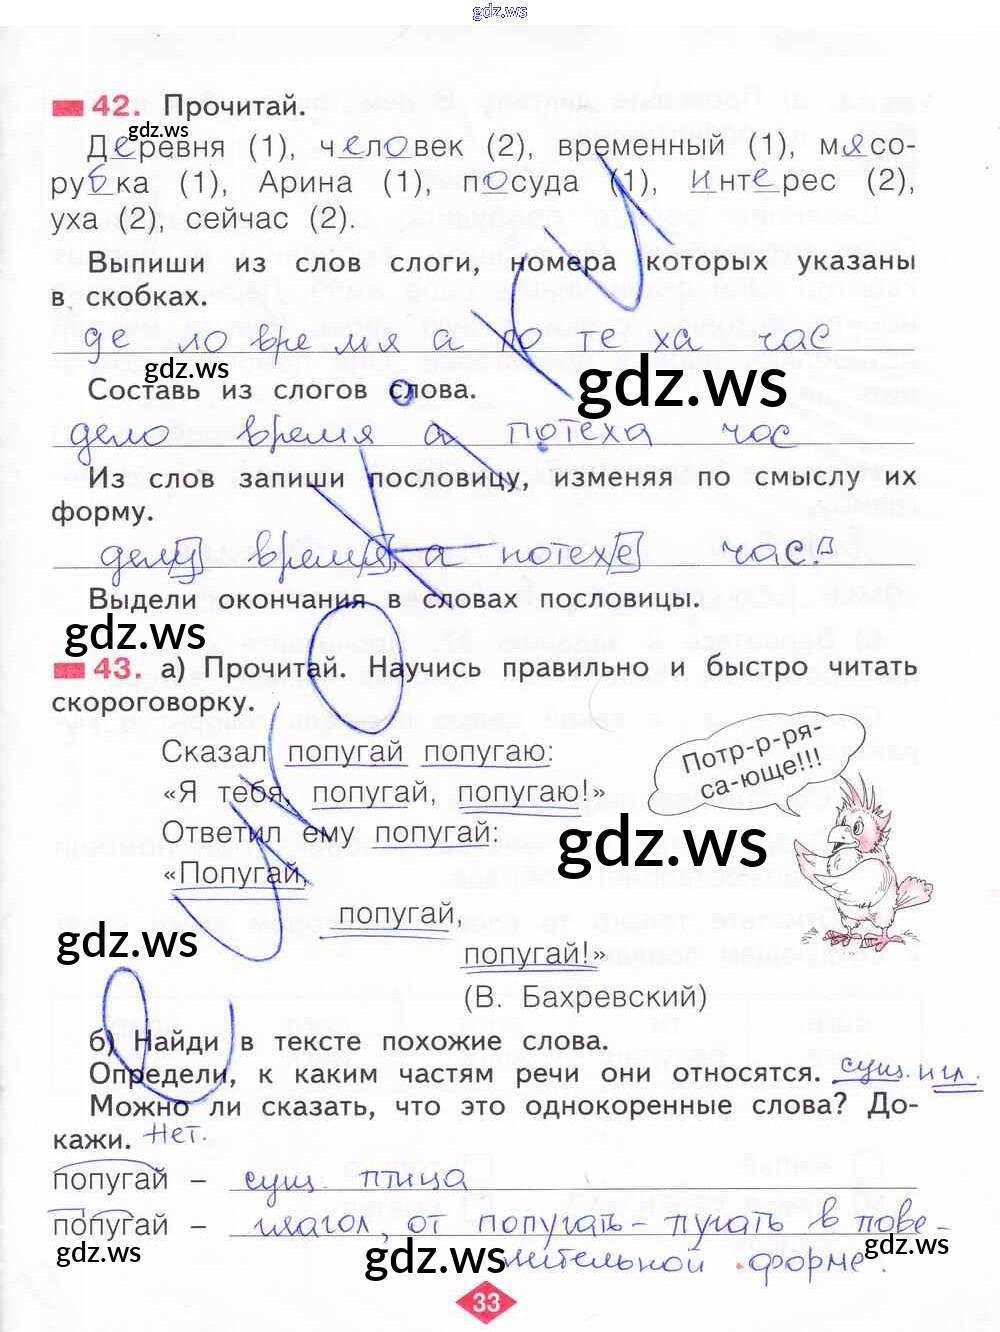 gdz.ws
42. Прочитай.
gdz.ws
Деревня (1), человек (2), временный (1), мясо-
рубка (1), Арина (1), посуда (1), интерес (2),
уха (2), сейчас (2).
Выпиши из слов слоги, номера которых указаны
в скобках.
де ло вре мя а по те ха час
gdz.ws
gdz.ws
Составь из слогов слова.
дело время а потеха час
Из слов запиши пословицу, изменяя по смыслу их
форму.
делу время, а потехе час.
Выдели окончания в словах пословицы.
gdz.ws
43. а) Прочитай. Научись правильно и быстро читать
скороговорку.
Сказал попугай попугаю:
«Я тебя, попугай, попугаю!»
Ответил ему попугай:
«Попугай,
попугай,
попугай!»
(В. Бахревский)
Потр-р-ря-
са-юще!!!
gdz.ws
gdz.ws
б) Найди в тексте похожие слова.
Определи, к каким частям речи они относятся. сущ. и гл.
Можно ли сказать, что это однокоренные слова? До-
кажи. Нет.
попугай – сущ. птица
попугай – глагол, от попугать - пугать в пове-
лительной форме.
gdz.ws
gdz.ws
gdz.ws
33